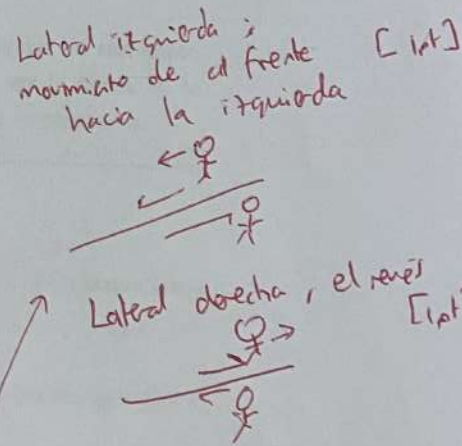 Lateral izquierda :
movimiato de el frente [1pt]
hacia la izquierda
Lateral derecha, el revés
[1pt]